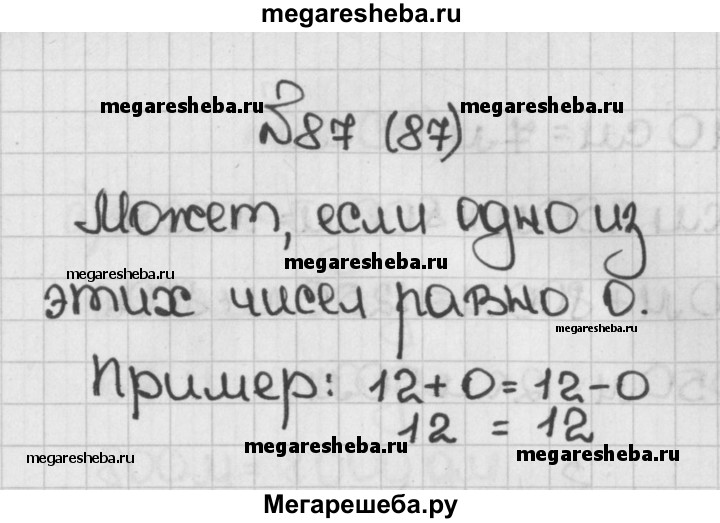 megaresheba.ru
megaresheba.ru megaresheba.ru
№87 (87)
Может, если одно из
megaresheba.ru
megaresheba.ru
этих чисел равно 0.
megaresheba.ru
Пример: 12+0=12-0
12 = 12
megaresheba.ru megaresheba.ru megaresheba.ru
Мегарешеба.ру